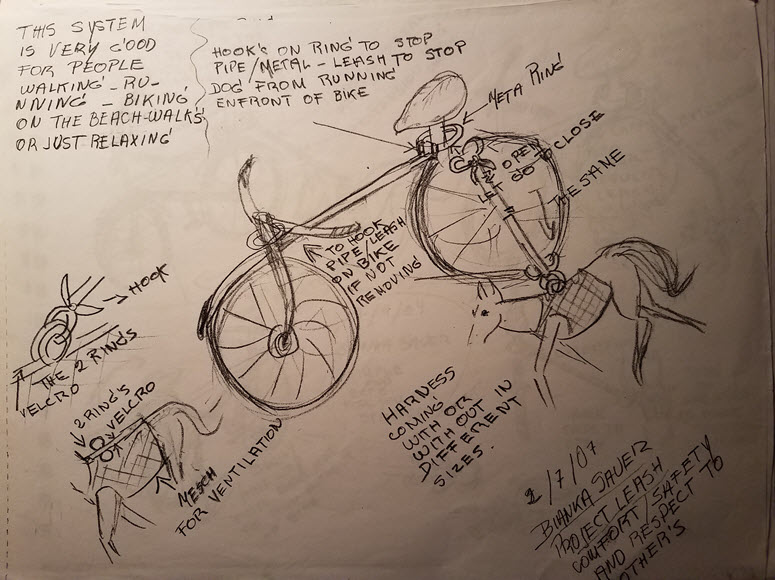 THIS SYSTEM
IS VERY GOOD
FOR PEOPLE
WALKING - RU-
NNING - BIKING
ON THE BEACH-WALKS
OR JUST RELAXING
HOOK'S ON RING TO STOP
PIPE/METAL - LEASH TO STOP
DOG FROM RUNNING
ENFRONT OF BIKE
META RING
OPEN
LET GO TO CLOSE
THE SAME
TO HOOK
PIPE/LEASH
ON BIKE
IF NOT
REMOVING
HOOK
THE 2 RING'S
VELCRO
2 RING'S
VELCRO
MESCH
FOR VENTILATION
HARNESS
COMING
WITH OR
WITH OUT IN
DIFFERENT
SIZES.
2/7/07
BIANKA SAUER
PROJECT LEASH
COMFORT/SAFETY
AND RESPECT TO
OTHER'S